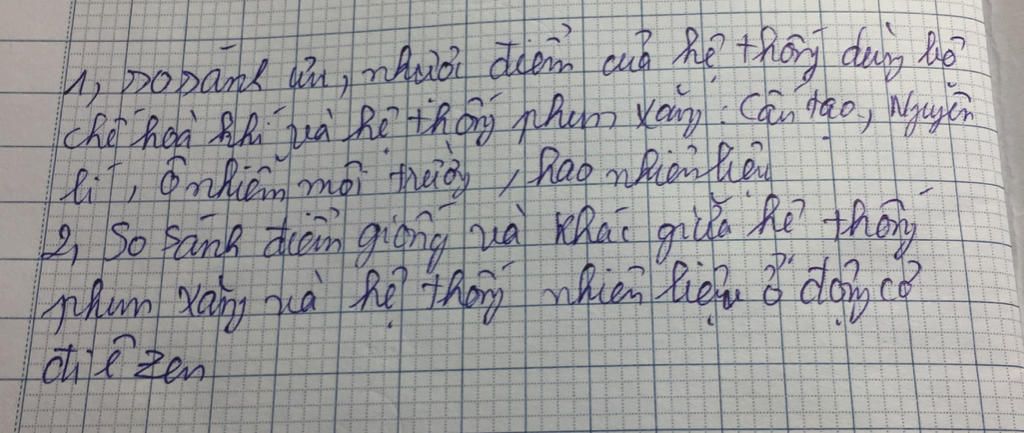 1, So sánh ưu, nhược điểm của hệ thống dùng bộ
chế hoà khí và hệ thống phun xăng: Cấu tạo, Nguyên
lí, Ô nhiễm môi trường, hao nhiên liệu
2, So sánh điểm giống và khác giữa hệ thống
phun xăng và hệ thống nhiên liệu ở động cơ
điêzen